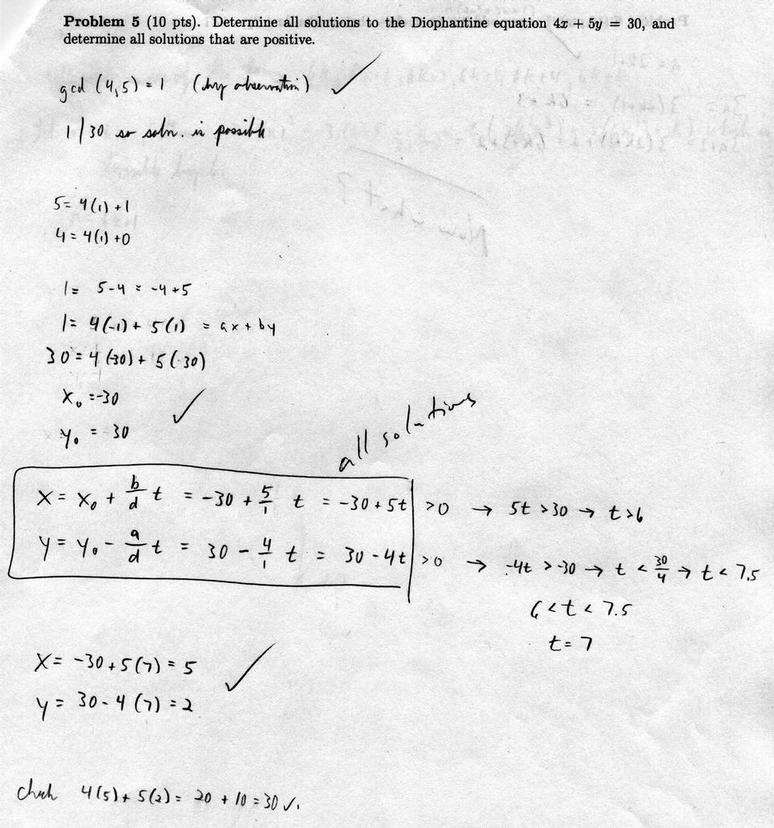 Problem 5 (10 pts). Determine all solutions to the Diophantine equation 4x + 5y = 30, and
determine all solutions that are positive.
gcd (4,5) = 1 (by observation) ✓
1 | 30 so soln. is possible
5 = 4(1) + 1
4 = 4(1) + 0
1 = 5 - 4 = -4 + 5
1 = 4(-1) + 5(1) = ax + by
30 = 4(-30) + 5(30)
x₀ = -30
y₀ = 30 ✓
all solutions
x = x₀ + b/d t = -30 + 5/1 t = -30 + 5t > 0 → 5t > 30 → t > 6
y = y₀ - a/d t = 30 - 4/1 t = 30 - 4t > 0 → -4t > -30 → t < 30/4 → t < 7.5
6 < t < 7.5
t = 7
x = -30 + 5(7) = 5
y = 30 - 4(7) = 2 ✓
check 4(5) + 5(2) = 20 + 10 = 30 ✓.
Now what?